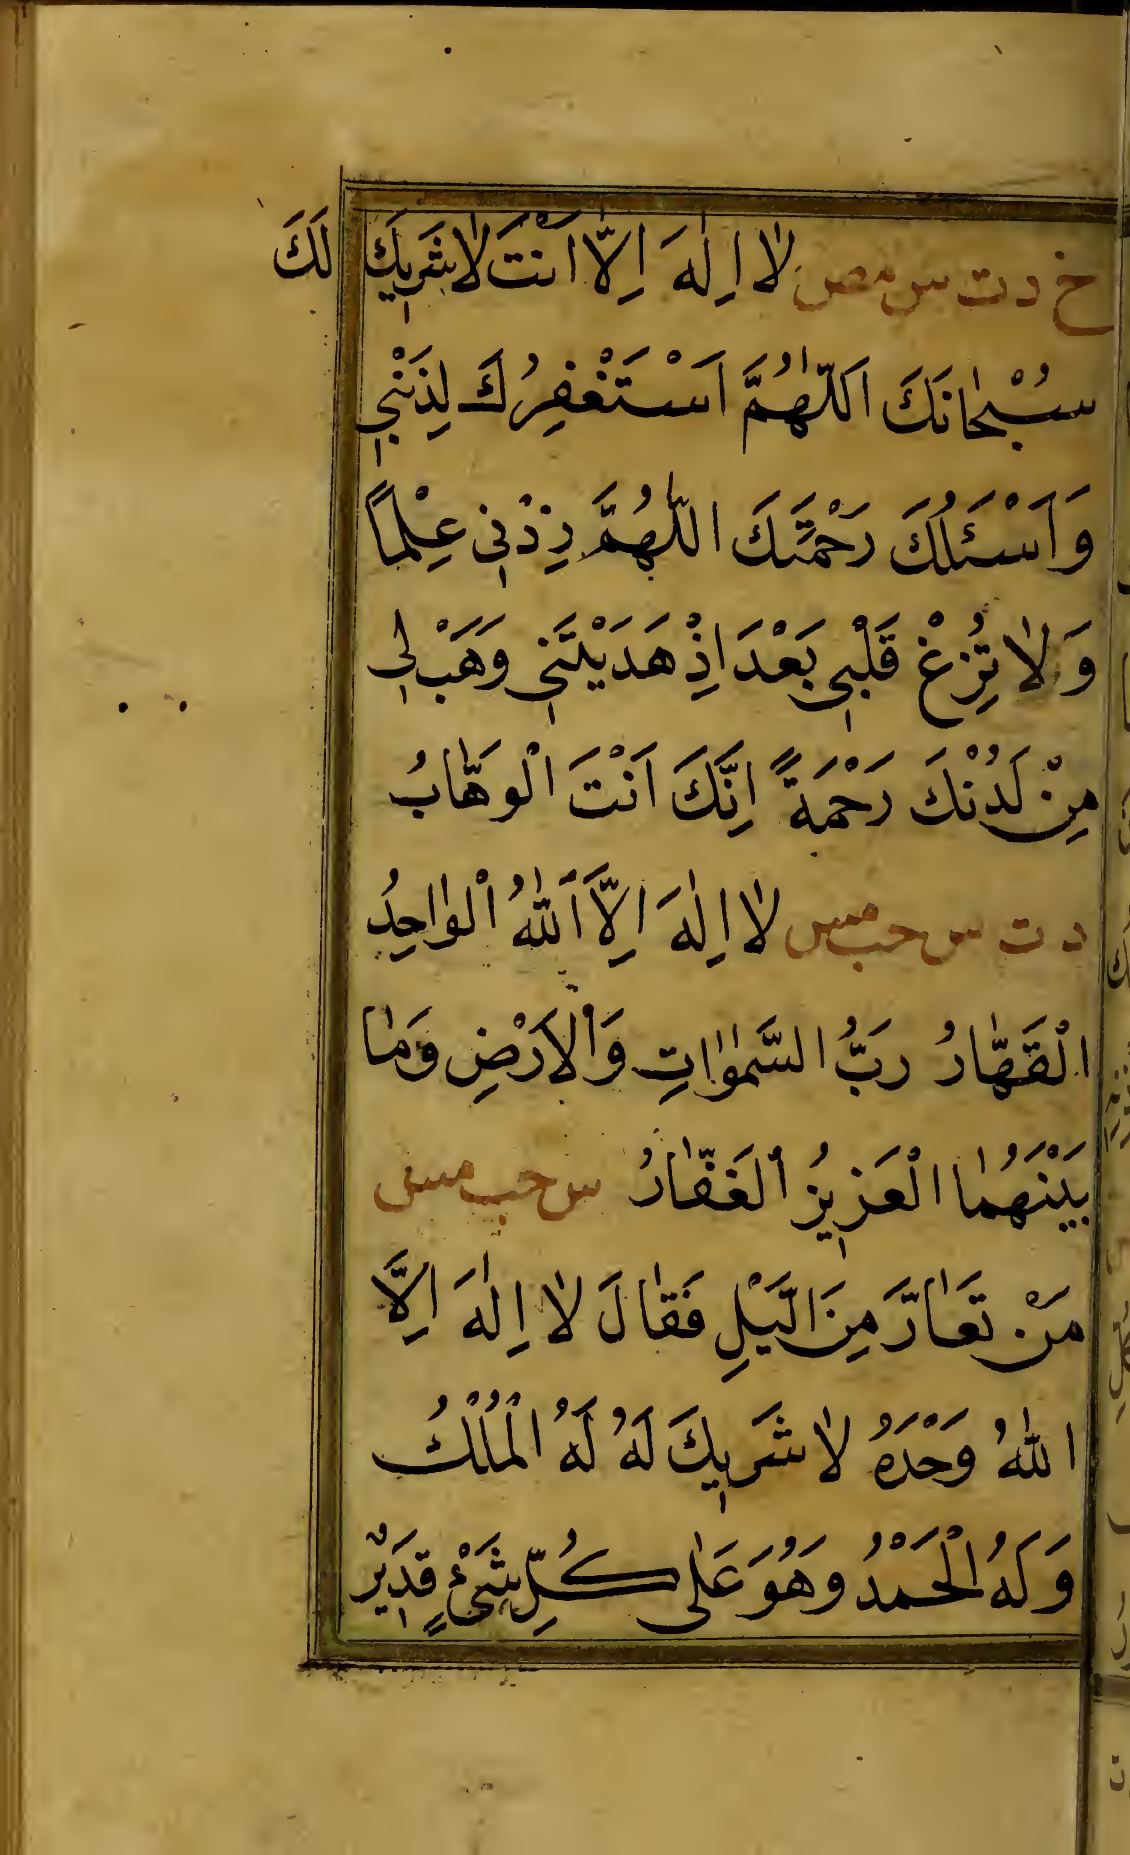 خ د ت س مص لَا اِلٰهَ اِلَّا اَنْتَ لَا شَرِيكَ لَكَ
سُبْحَانَكَ اَللّٰهُمَّ اَسْتَغْفِرُكَ لِذَنْبِي
وَاَسْئَلُكَ رَحْمَتَكَ اللّٰهُمَّ زِدْنِي عِلْمًا
وَلَا تُزِغْ قَلْبِي بَعْدَ اِذْ هَدَيْتَنِي وَهَبْ لِي
مِنْ لَدُنْكَ رَحْمَةً اِنَّكَ اَنْتَ الْوَهَّابُ
د ت س حب مس لَا اِلٰهَ اِلَّا اللّٰهُ الْوَاحِدُ
الْقَهَّارُ رَبُّ السَّمٰوَاتِ وَالْاَرْضِ وَمَا
بَيْنَهُمَا الْعَزِيزُ الْغَفَّارُ س حب مس
مَنْ تَعَارَّ مِنَ الَّيْلِ فَقَالَ لَا اِلٰهَ اِلَّا
اللّٰهُ وَحْدَهُ لَا شَرِيكَ لَهُ لَهُ الْمُلْكُ
وَلَهُ الْحَمْدُ وَهُوَ عَلٰى كُلِّ شَيْءٍ قَدِيْرٌ